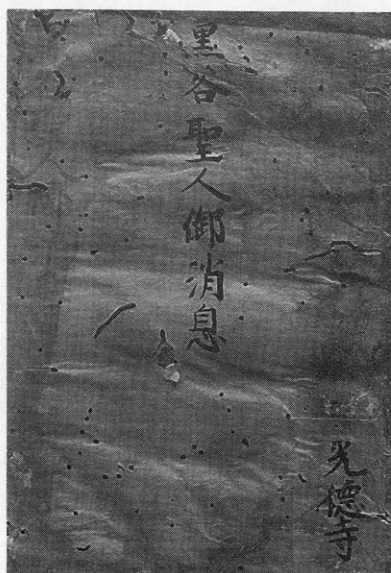 黒谷聖人御消息
光徳寺